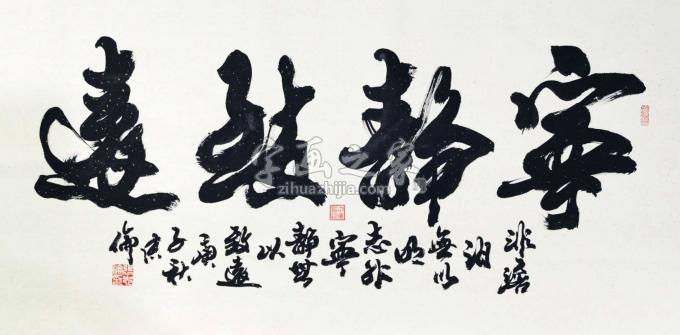 寧靜致遠
非澹
泊
無以
明
志非
寧
靜無
以
致遠
庚
子秋
倫
字画之家
zihuazhijia.com